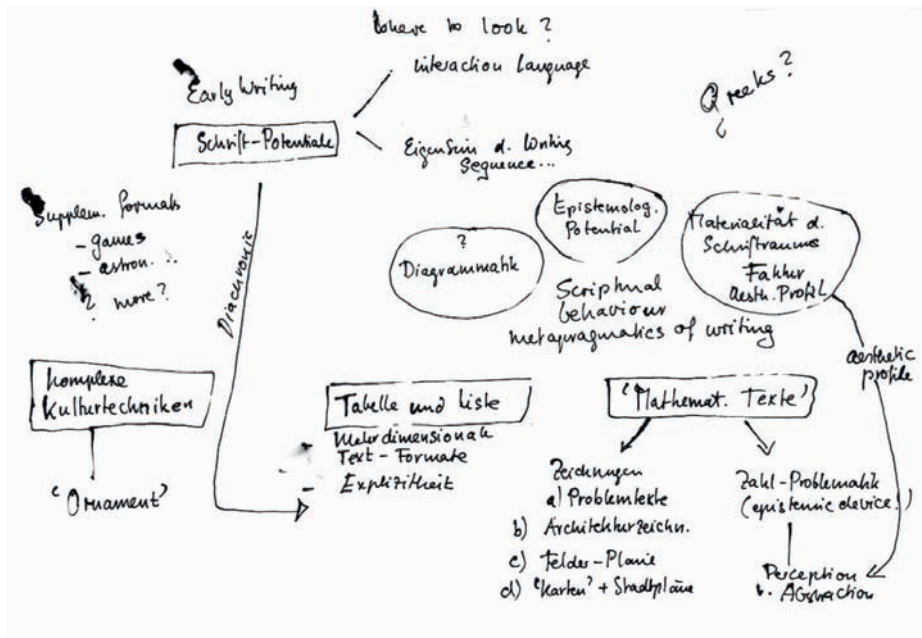 Where to look?
interaction language
Early Writing
Schrift-Potentiale
Eigensinn d. Writing
Sequence...
Greeks?
Supplem. formats
- games
- astron. ...
? more?
Diachronie
?
Diagrammatik
Epistemolog.
Potential
Materialität d.
Schriftraums
Faktur
Aesth. Profil
Scriptural
behaviour
metapragmatics of writing
aesthetic
profile
Komplexe
Kulturtechniken
'Ornament'
Tabelle und Liste
- Mehrdimensionale
Text-Formate
- Explizitheit
'Mathemat. Texte'
Zeichnungen
a) Problemtexte
b) Architekturzeichn.
c) Felder-Pläne
d) 'Karten' + Stadtpläne
Zahl-Problematik
(epistemic device)
Perception
Abstraction